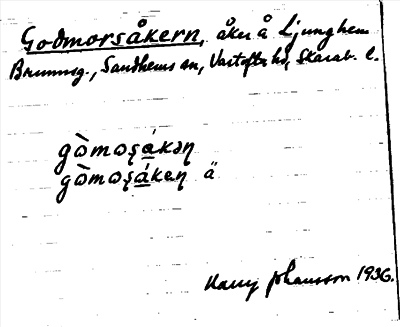 Godmorsåkern, åker å Ljunghem
Brunnsg., Sandhems sn, Vartofta hd, Skarab. l.
gòmoşákəņ
gòmoşákeņ ä
Harry Johansson 1936.